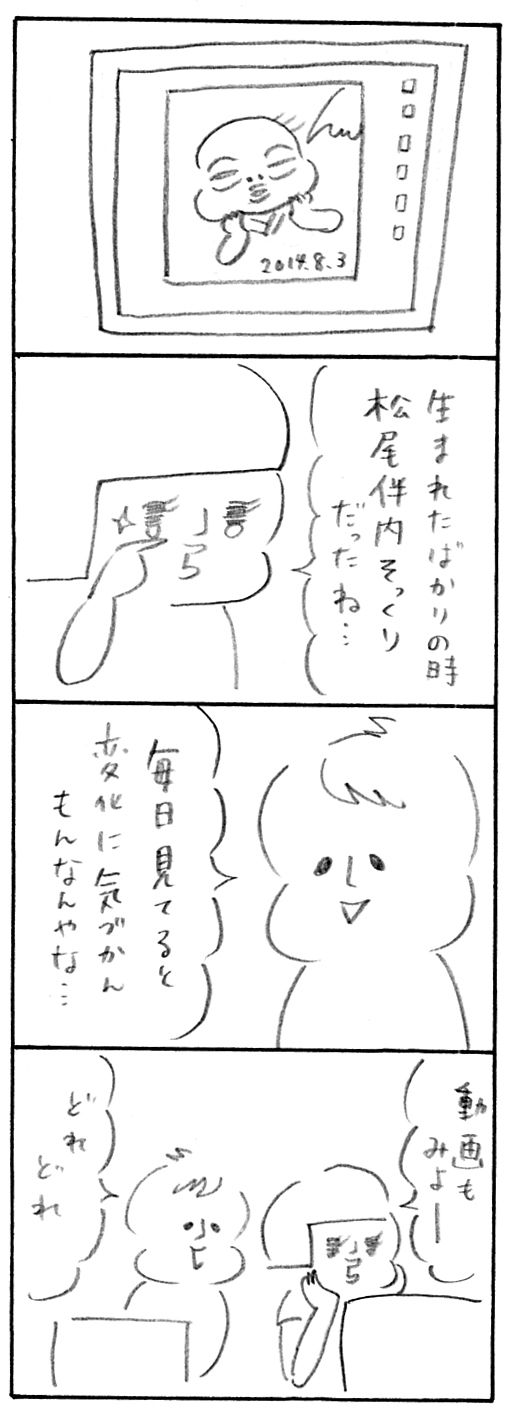 2014.8.3
生まれたばかりの時
松尾伴内そっくり
だったね…
毎日見てると
変化に気づかん
もんなんやな…
動画も
みよー
どれ
どれ